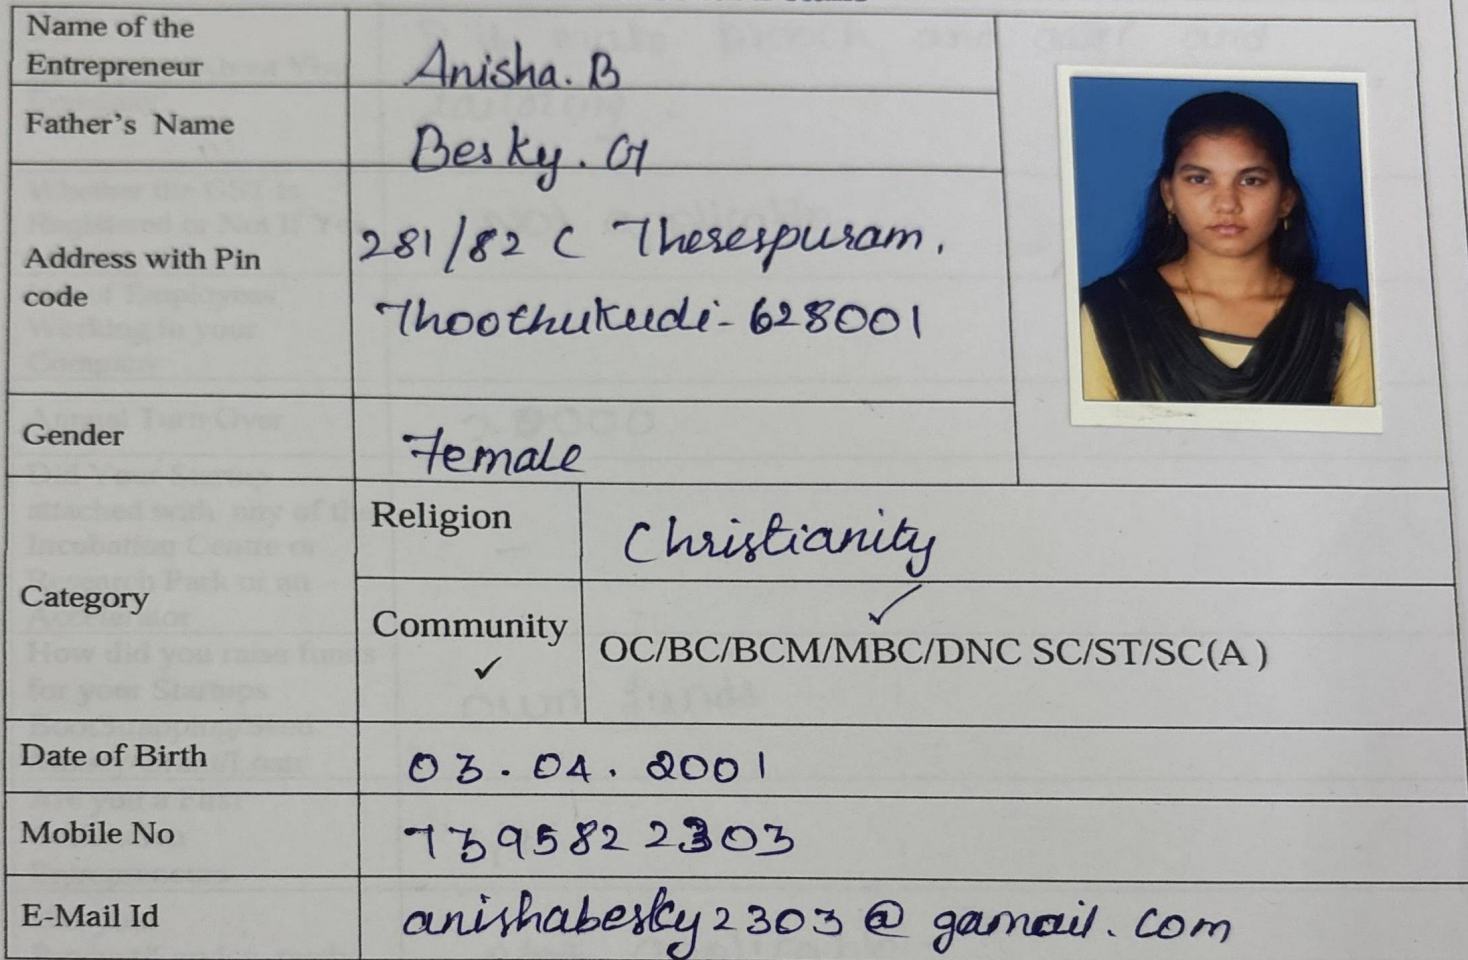 Name of the
Entrepreneur
Anisha. B
Father's Name
Besky. G
Address with Pin
code
281/82 C Therespuram,
Thoothukudi - 628001
Gender
Female
Category
Religion
Christianity
Community
✓
✓
OC/BC/BCM/MBC/DNC SC/ST/SC(A )
Date of Birth
03. 04. 2001
Mobile No
7395822303
E-Mail Id
anishabesky2303@gamail.com